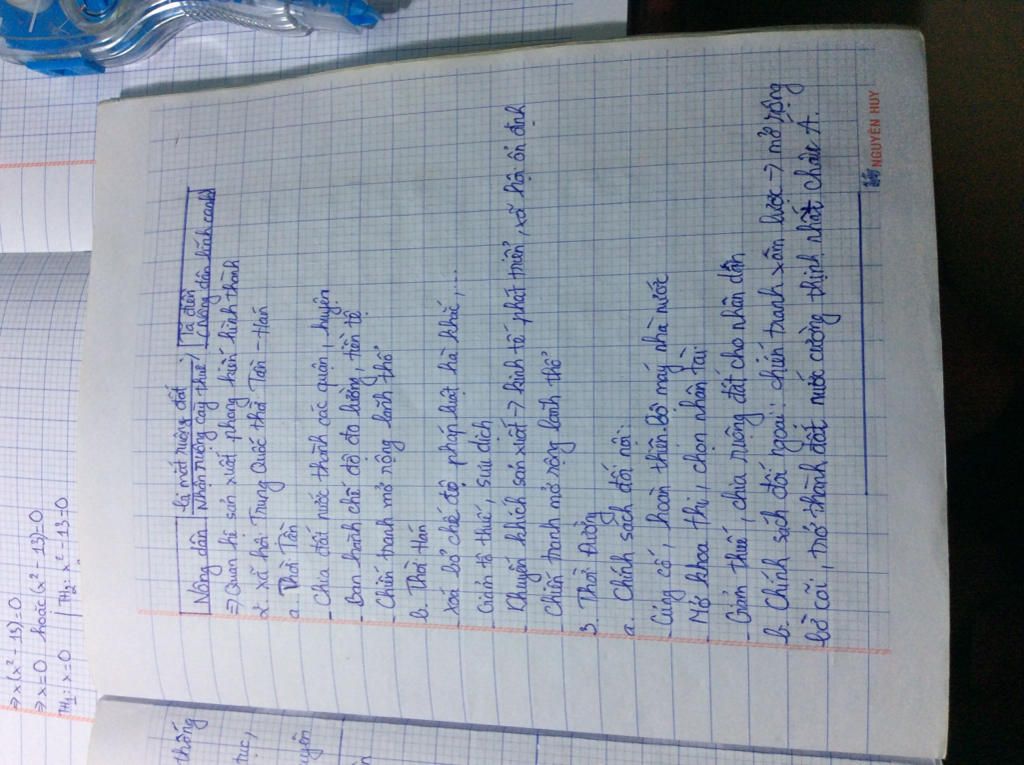 ⇒ x(x² - 13) = 0
⇒ x = 0 hoặc (x² - 13) = 0
TH₁: x = 0 | TH₂: x² - 13 = 0
thống
tục,
uyên
Nông dân | bị mất ruộng đất | Tá điền
Nhận ruộng cày thuê | (Nông dân lĩnh canh)
⇒ Quan hệ sản xuất phong kiến hình thành
2. Xã hội Trung Quốc thời Tần - Hán
a. Thời Tần
- Chia đất nước thành các quận, huyện.
- Ban hành chế độ đo lường, tiền tệ
- Chiến tranh mở rộng lãnh thổ
b. Thời Hán
- Xoá bỏ chế độ pháp luật hà khắc,...
- Giảm tô thuế, sưu dịch
- Khuyến khích sản xuất → kinh tế phát triển, xã hội ổn định
- Chiến tranh mở rộng lãnh thổ
3 Thời Đường
a. Chính sách đối nội:
- Củng cố, hoàn thiện bộ máy nhà nước
- Mở khoa thi, chọn nhân tài
- Giảm thuế, chia ruộng đất cho nhân dân
b. Chính sách đối ngoại: chiến tranh xâm lược → mở rộng
bờ cõi, trở thành đất nước cường thịnh nhất châu Á.
NGUYÊN HUY